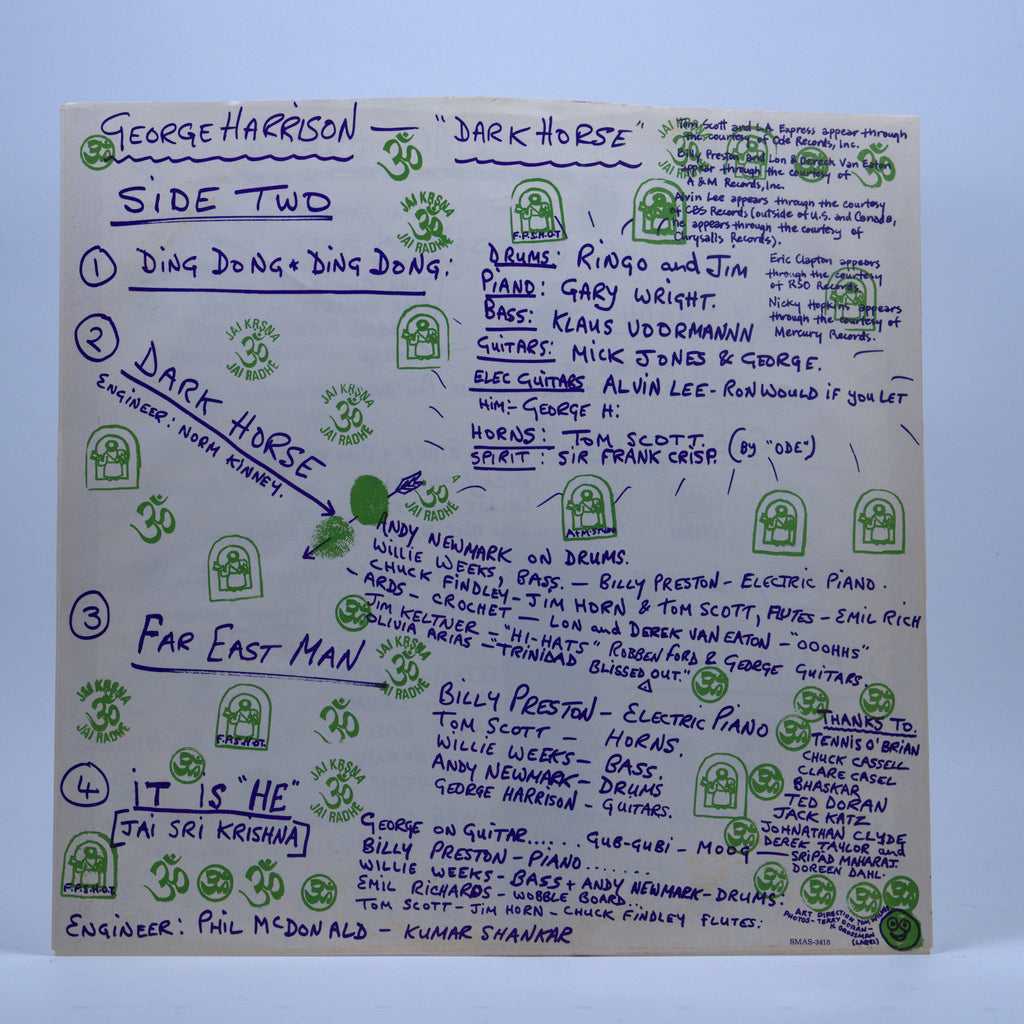 GEORGE HARRISON — "DARK HORSE"
SIDE TWO
Tom Scott and L.A. Express appear through
the courtesy of Ode Records, Inc.
Billy Preston and Lon & Dereck Van Eaton
appear through the courtesy of
A & M Records, Inc.
Alvin Lee appears through the courtesy
of CBS Records (outside of U.S. and Canada,
he appears through the courtesy of
Chrysalis Records).
Eric Clapton appears
through the courtesy
of RSO Records.
Nicky Hopkins appears
through the courtesy of
Mercury Records.
1 DING DONG * DING DONG:
DRUMS: RINGO and JIM
PIANO: GARY WRIGHT.
BASS: KLAUS VOORMANNN
GUITARS: MICK JONES & GEORGE.
ELEC GUITARS ALVIN LEE - RON WOULD if YOU LET
HIM:- GEORGE H:
HORNS: TOM SCOTT. (BY "ODE")
SPIRIT: SIR FRANK CRISP.
2 DARK HORSE
ENGINEER: NORM KINNEY.
ANDY NEWMARK ON DRUMS.
WILLIE WEEKS, BASS. — BILLY PRESTON - ELECTRIC PIANO.
- CHUCK FINDLEY - JIM HORN & TOM SCOTT, FLUTES - EMIL RICH
- ARDS - CROCHET — LON and DEREK VAN EATON - "OOOHHS"
JIM KELTNER - "HI-HATS" ROBBEN FORD & GEORGE GUITARS.
OLIVIA ARIAS - TRINIDAD BLISSED OUT."
3 FAR EAST MAN
BILLY PRESTON - ELECTRIC PIANO
TOM SCOTT - HORNS.
WILLIE WEEKS - BASS.
ANDY NEWMARK - DRUMS
GEORGE HARRISON - GUITARS.
4 iT iS "HE"
[JAI SRI KRISHNA]
GEORGE ON GUITAR..... GUB-GUBI - MOOG
BILLY PRESTON - PIANO........
WILLIE WEEKS - BASS + ANDY NEWMARK - DRUMS.
EMIL RICHARDS - WOBBLE BOARD...
TOM SCOTT - JIM HORN - CHUCK FINDLEY FLUTES:
ENGINEER: PHIL McDONALD - KUMAR SHANKAR
THANKS TO.
TENNIS O'BRIAN
CHUCK CASSELL
CLARE CASEL
BHASKAR
TED DORAN
JACK KATZ
JOHNATHAN CLYDE
DEREK TAYLOR and
SRIPAD MAHARAJ.
DOREEN DAHL.
ART DIRECTION TOM WILKES
PHOTOS - TERRY DORAN -
H. GROSSMAN
(LABEL)
SMAS-3418
ॐ
JAI KRSNA
ॐ
JAI RADHE
F.P.S.H.O.T.
JAI KRSNA
ॐ
JAI RADHE
JAI KRSNA
ॐ
JAI RADHE
ॐ
A+M STUDIO
JAI KRSNA
ॐ
JAI RADHE
JAI KRSNA
ॐ
JAI RADHE
F.P.S.H.O.T.
ॐ
JAI KRSNA
ॐ
JAI RADHE
F.P.S.H.O.T.
ॐ
ॐ